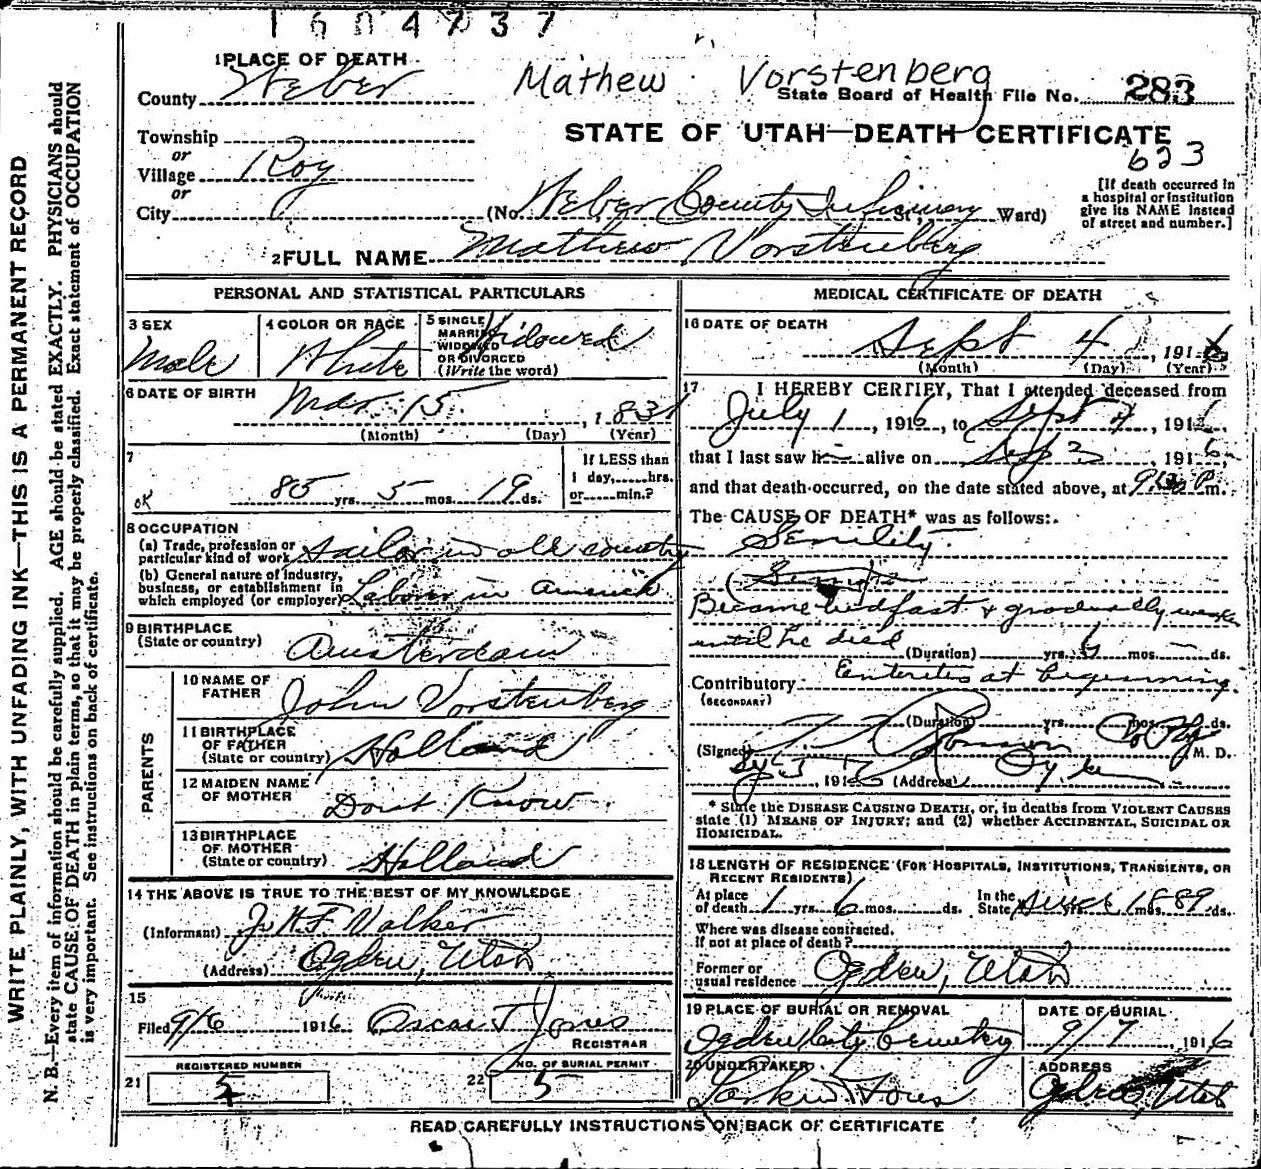 1604737
1 PLACE OF DEATH
Mathew Vorstenberg
County Weber
State Board of Health File No. 283
STATE OF UTAH—DEATH CERTIFICATE
623
Township
or
Village Roy
or
City
(No. Weber County Infirmary St., Ward)
[If death occurred in
a hospital or institution
give its NAME instead
of street and number.]
2 FULL NAME Mathew Vorstenberg
WRITE PLAINLY, WITH UNFADING INK—THIS IS A PERMANENT RECORD
N. B.—Every item of information should be carefully supplied. AGE should be stated EXACTLY. PHYSICIANS should
state CAUSE OF DEATH in plain terms, so that it may be properly classified. Exact statement of OCCUPATION
is very important. See instructions on back of certificate.
PERSONAL AND STATISTICAL PARTICULARS
3 SEX
Male
4 COLOR OR RACE
White
5 SINGLE
MARRIED
WIDOWED
OR DIVORCED
(Write the word)
Widowed
6 DATE OF BIRTH
Mar 15, 1831
(Month) (Day) (Year)
7
OK
85 yrs. 5 mos. 19 ds.
If LESS than
1 day, hrs.
or min.?
8 OCCUPATION
(a) Trade, profession or
particular kind of work sailor in old country
(b) General nature of industry,
business, or establishment in
which employed (or employer) Labour in America
9 BIRTHPLACE
(State or country) Amsterdam
PARENTS
10 NAME OF
FATHER John Vorstenberg
11 BIRTHPLACE
OF FATHER
(State or country) Holland
12 MAIDEN NAME
OF MOTHER Dont Know
13 BIRTHPLACE
OF MOTHER
(State or country) Holland
14 THE ABOVE IS TRUE TO THE BEST OF MY KNOWLEDGE
(Informant) J. H. F. Volker
(Address) Ogden, Utah
15
Filed 9/6 1916 Oscar T Jones
REGISTRAR
REGISTERED NUMBER
21 5
NO. OF BURIAL PERMIT
22 5
MEDICAL CERTIFICATE OF DEATH
16 DATE OF DEATH
Sept 4, 1916
(Month) (Day) (Year)
17 I HEREBY CERTIFY, That I attended deceased from
July 1, 1916, to Sept 4, 1916,
that I last saw h alive on Sep 3, 1916,
and that death occurred, on the date stated above, at 9 P m.
The CAUSE OF DEATH* was as follows:
Senility
Became bedfast & gradually weaker
until he died
(Duration) yrs. 6 mos. ds.
Contributory Enteritis at beginning.
(SECONDARY)
(Duration) yrs. mos. ds.
(Signed) Co Phy M. D.
1916 (Address) Ogden
* State the DISEASE CAUSING DEATH, or, in deaths from VIOLENT CAUSES
state (1) MEANS OF INJURY; and (2) whether ACCIDENTAL, SUICIDAL OR
HOMICIDAL.
18 LENGTH OF RESIDENCE (FOR HOSPITALS, INSTITUTIONS, TRANSIENTS, OR
RECENT RESIDENTS)
At place
of death 1 yrs. 6 mos. ds.
In the
State since 1889 yrs. mos. ds.
Where was disease contracted.
if not at place of death?
Former or
usual residence Ogden, Utah
19 PLACE OF BURIAL OR REMOVAL
Ogden City Cemetery
DATE OF BURIAL
9/7, 1916
20 UNDERTAKER
Larkin & Sons
ADDRESS
Ogden, Utah
READ CAREFULLY INSTRUCTIONS ON BACK OF CERTIFICATE